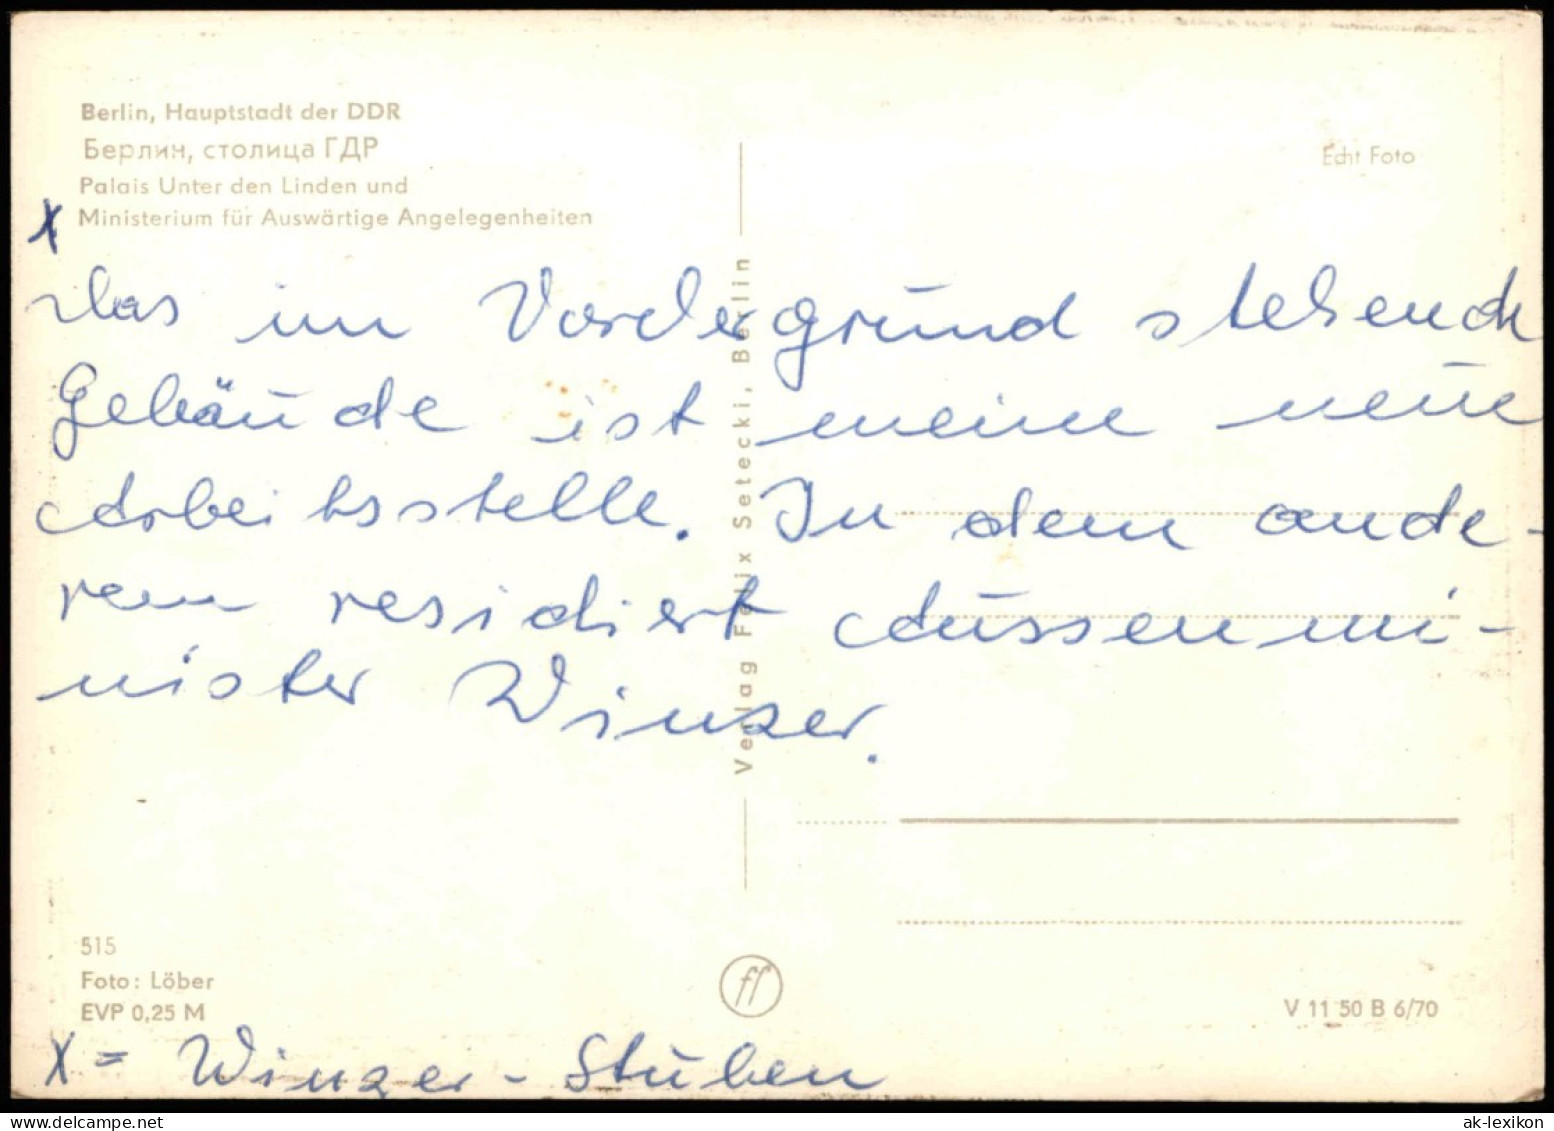 Berlin, Hauptstadt der DDR
Берлин, столица ГДР
Palais Unter den Linden und
Ministerium für Auswärtige Angelegenheiten
Echt Foto
x
Das im Vordergrund stehende
Gebäude ist meine neue
Arbeitsstelle. In dem ande-
rem residiert Aussenmi-
nister Winzer.
Verlag Felix Setecki, Berlin
515
Foto: Löber
EVP 0,25 M
ff
V 11 50 B 6/70
x = Winzer-Stuben
ak-lexikon.com